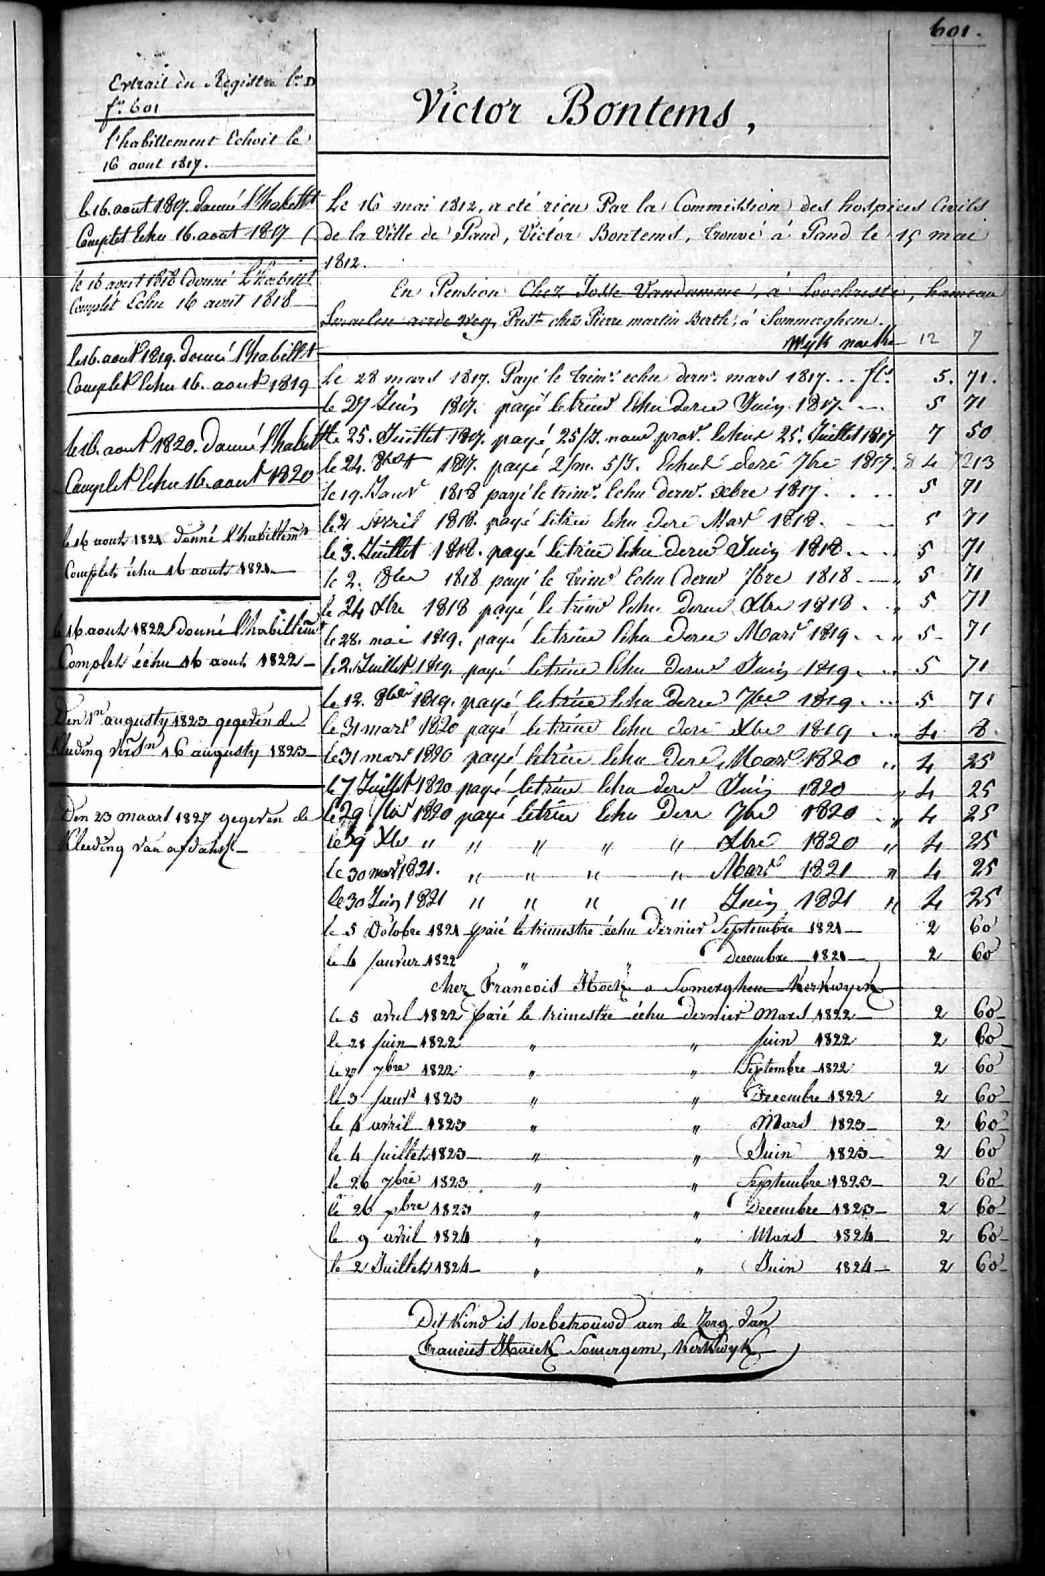 601.
Extrait du Registre
f° 601
l'habillement Echoit le
16 aout 1817.
le 16. aout 1817. donné l'habillt
Complet Echu 16. aout 1817
le 16 aout 1818 donné l'habillt
Complet Echu 16 aout 1818
Le 16. aout 1819. donné l'habillt
Complet Echu 16. aout 1819
le 16. aout 1820. donné l'habillt
Complet Echu 16. aout 1820
le 16 aout 1821 donné l'habillemt
Complet échu 16 aout 1821
le 16 aout 1822 donné l'habillemt
Complet échu 16 aout 1822
Den 1n augusty 1823 gegeven de
Kleeding 16 augusty 1823
Den 23 maart 1827 gegeven de
Kleeding van
Victor Bontems,
Le 16 mai 1812, a eté Par la Commission des hospices Civils
de la Ville de Gand, Victor Bontems, trouvé à Gand le 15 mai
1812.
En Pension Chez Josse Vandamme, à Loochristi, hameau
chez Pierre martin à Sommerghem.
Wyk 12 7
Le 28 mars 1817. Payé le trimr echu dernr mars 1817. . . fls 5. 71.
le 27 Juin 1817. payé le trimr Echu Juin 1817. 5 71
le 25. Juillet 1817. payé 25/J. Echus 25. Juillet 1817 7 50
le 24. 8bre 1817. payé 2/m. 5/J. Echus 7bre 1817. 4 213
le 19. Janvr 1818 payé le trimr. Echu dernr. xbre 1817. 5 71
le 2 Avril 1818. payé Echu Mars 1818. 5 71
le 3. Juillet 1818. payé Echu Juin 1818. 5 71
le 2. 8bre 1818 payé le trimr Echu dernr 7bre 1818 5 71
le 24 Xbre 1818 payé le trimr Echu Xbre 1818. 5 71
le 28. mai 1819. payé Echu Mars 1819 5 71
le 2. Juillet 1819. payé Echu Juin 1819 5 71
le 12. 8bre 1819. payé Echu 7bre 1819 5 71
le 31 mars 1820 payé Echu Xbre 1819 4 8
le 31 mars 1820 payé Echu Mars 1820 " 4 25
le 7 Juillet 1820 payé Echu Juin 1820 " 4 25
le 29 1820 payé Echu 7bre 1820 " 4 25
le 39 Xbre " " " " " Xbre 1820 " 4 25
le 30 mars 1821. " " " " Mars 1821 " 4 25
le 30 Juin 1821 " " " " Juin 1821 " 4 25
le 5 Octobre 1821 paié le trimestre échu dernier Septembre 1821 2 60
le 4 janvier 1822 " " Decembre 1821 2 60
chez Francois a Somerghem Kerkwyck
le 5 avril 1822 paié le trimestre échu dernier Mars 1822 2 60
le 28 juin 1822 " " juin 1822 2 60
le 27 7bre 1822 " " Septembre 1822 2 60
le 3 janvr 1823 " " Decembre 1822 2 60
le 4 avril 1823 " " Mars 1823 2 60
le 4 juillet 1823 " " Juin 1823 2 60
le 26 7bre 1823 " " Septembre 1823 2 60
le 26 1823 " " Decembre 1823 2 60
le 9 avril 1824 " " Mars 1824 2 60
le 2 Juillet 1824 " " Juin 1824 2 60
Dit Kind is toebetrouwd aen de Zorg van
Franciet Haeck Somergem, Kerkwyk